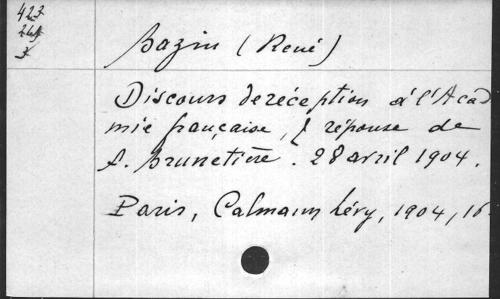 427
Bazin (René)
Discours de réception à l'Acad
mie française, & réponse de
F. Brunetière. 28 avril 1904.
Paris, Calmann Lévy, 1904, 16